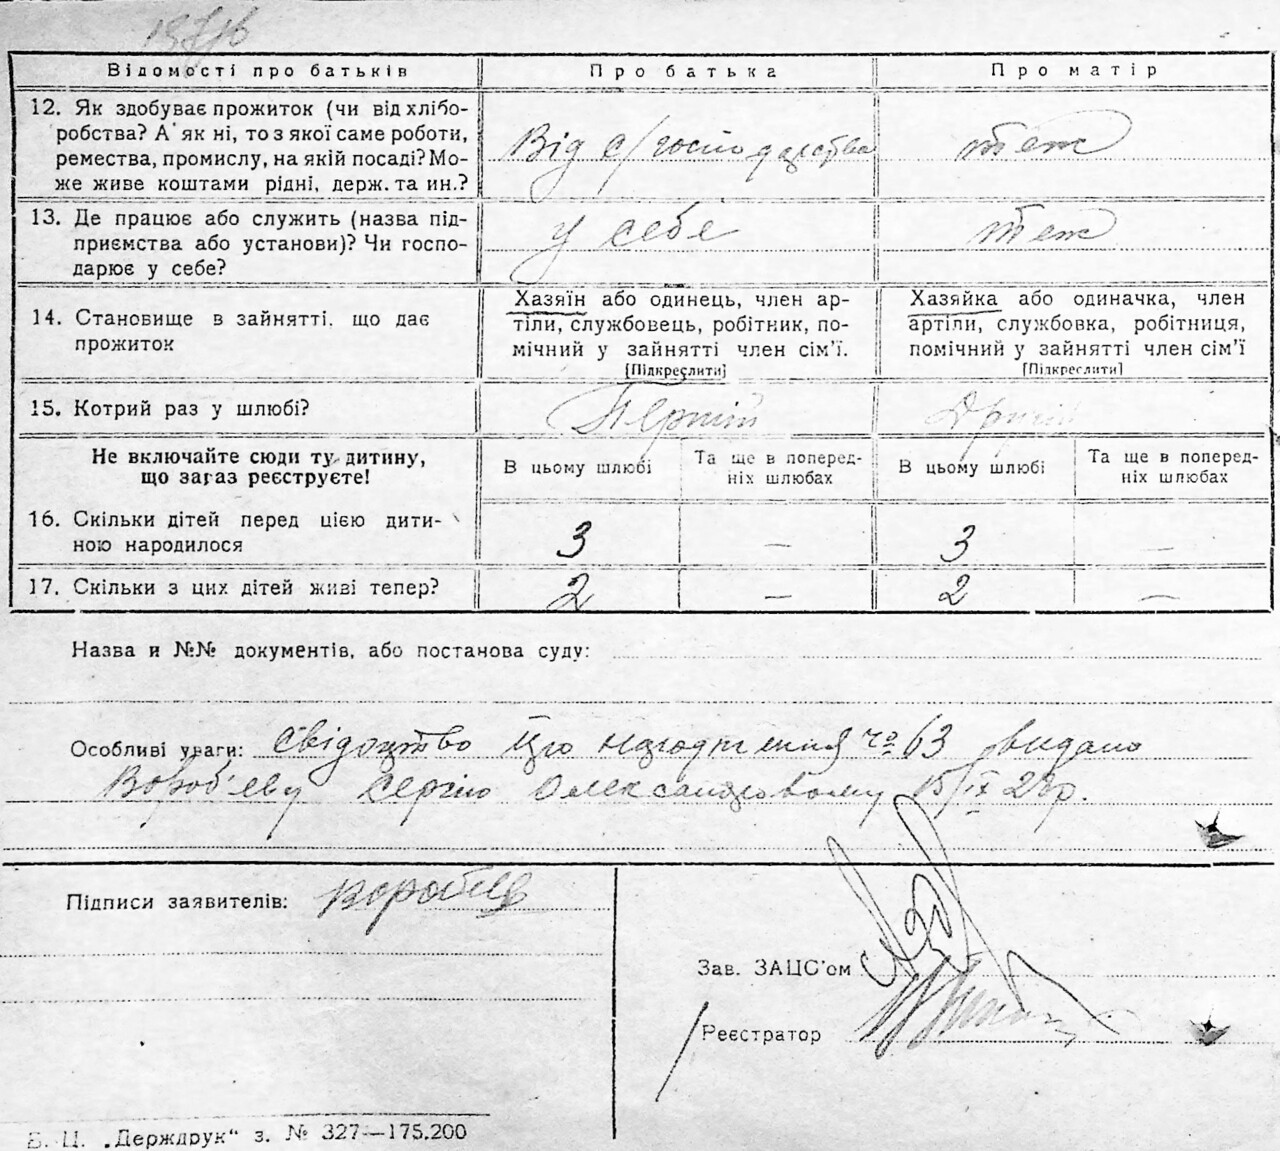 Відомості про батьків
Про батька
Про матір
12. Як здобуває прожиток (чи від хлібо-
робства? А як ні, то з якої саме роботи,
ремества, промислу, на якій посаді? Мо-
же живе коштами рідні, держ. та ин.?
Від с/господарства
теж
13. Де працює або служить (назва під-
приємства або установи)? Чи госпо-
дарює у себе?
у себе
теж
14. Становище в зайнятті, що дає
прожиток
Хазяїн або одинець, член ар-
тіли, службовець, робітник, по-
мічний у зайнятті член сім'ї.
[Підкреслити]
Хазяйка або одиначка, член
артіли, службовка, робітниця,
помічний у зайнятті член сім'ї
[Підкреслити]
15. Котрий раз у шлюбі?
Перший
Другий
Не включайте сюди ту дитину,
що зараз реєструєте!
В цьому шлюбі
Та ще в поперед-
ніх шлюбах
В цьому шлюбі
Та ще в поперед-
ніх шлюбах
16. Скільки дітей перед цією дити-
ною народилося
3 — 3 —
17. Скільки з цих дітей живі тепер?
2 — 2 —
Назва и №№ документів, або постанова суду:
Особливі уваги: Свідоцтво про народження № 63 видано
Вороб'еву Сергію Олександровому 15/IX 28р.
Підписи заявителів: Воробьев
Зав. ЗАЦС'ом
Реєстратор
В. Ц. „Держдрук“ з. № 327—175.200